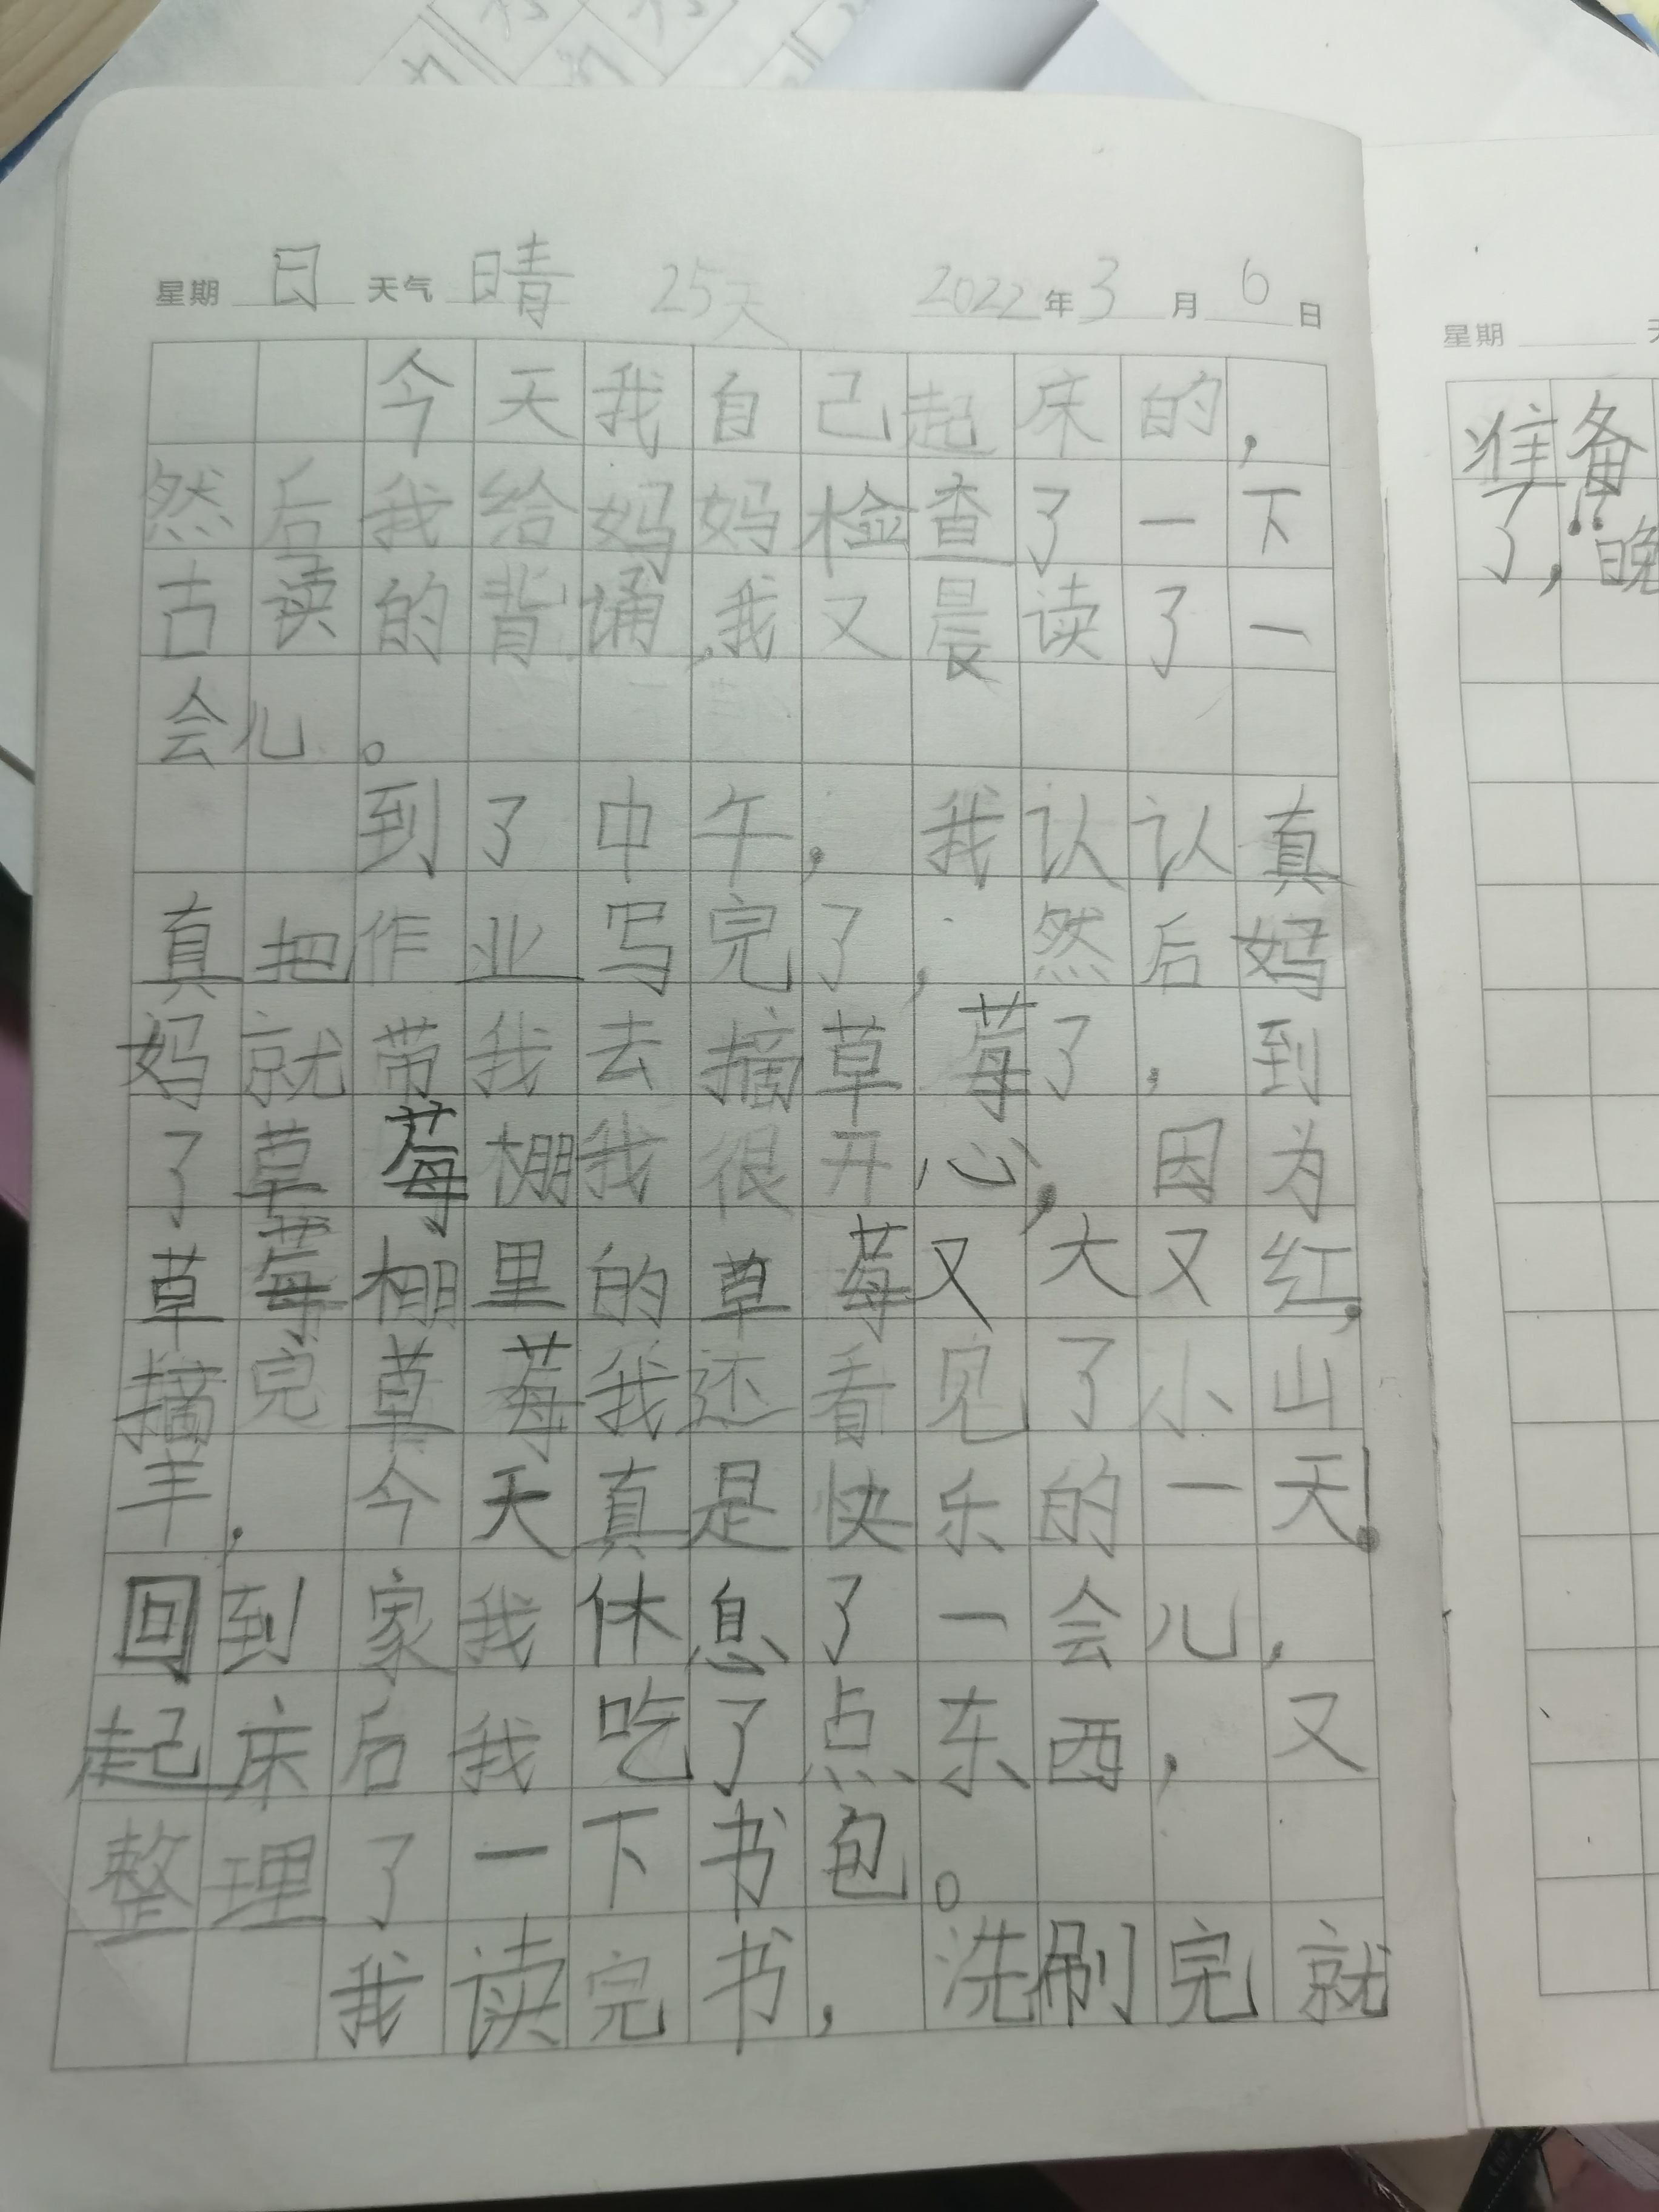 星期 日 天气 晴 25天 2022年3月6日
今天我自己起床的,
然后我给妈妈检查了一下
古读的背诵,我又晨读了一
会儿。
到了中午,我认认真
真把作业写完了,然后妈
妈就带我去摘草莓了,到
了草莓棚我很开心,因为
草莓棚里的草莓又大又红,
摘完草莓我还看见了小山
羊,今天真是快乐的一天!
回到家我休息了一会儿,
起床后我吃了点东西,又
整理了一下书包。
我读完书,洗刷完就
星期
准备
了,晚